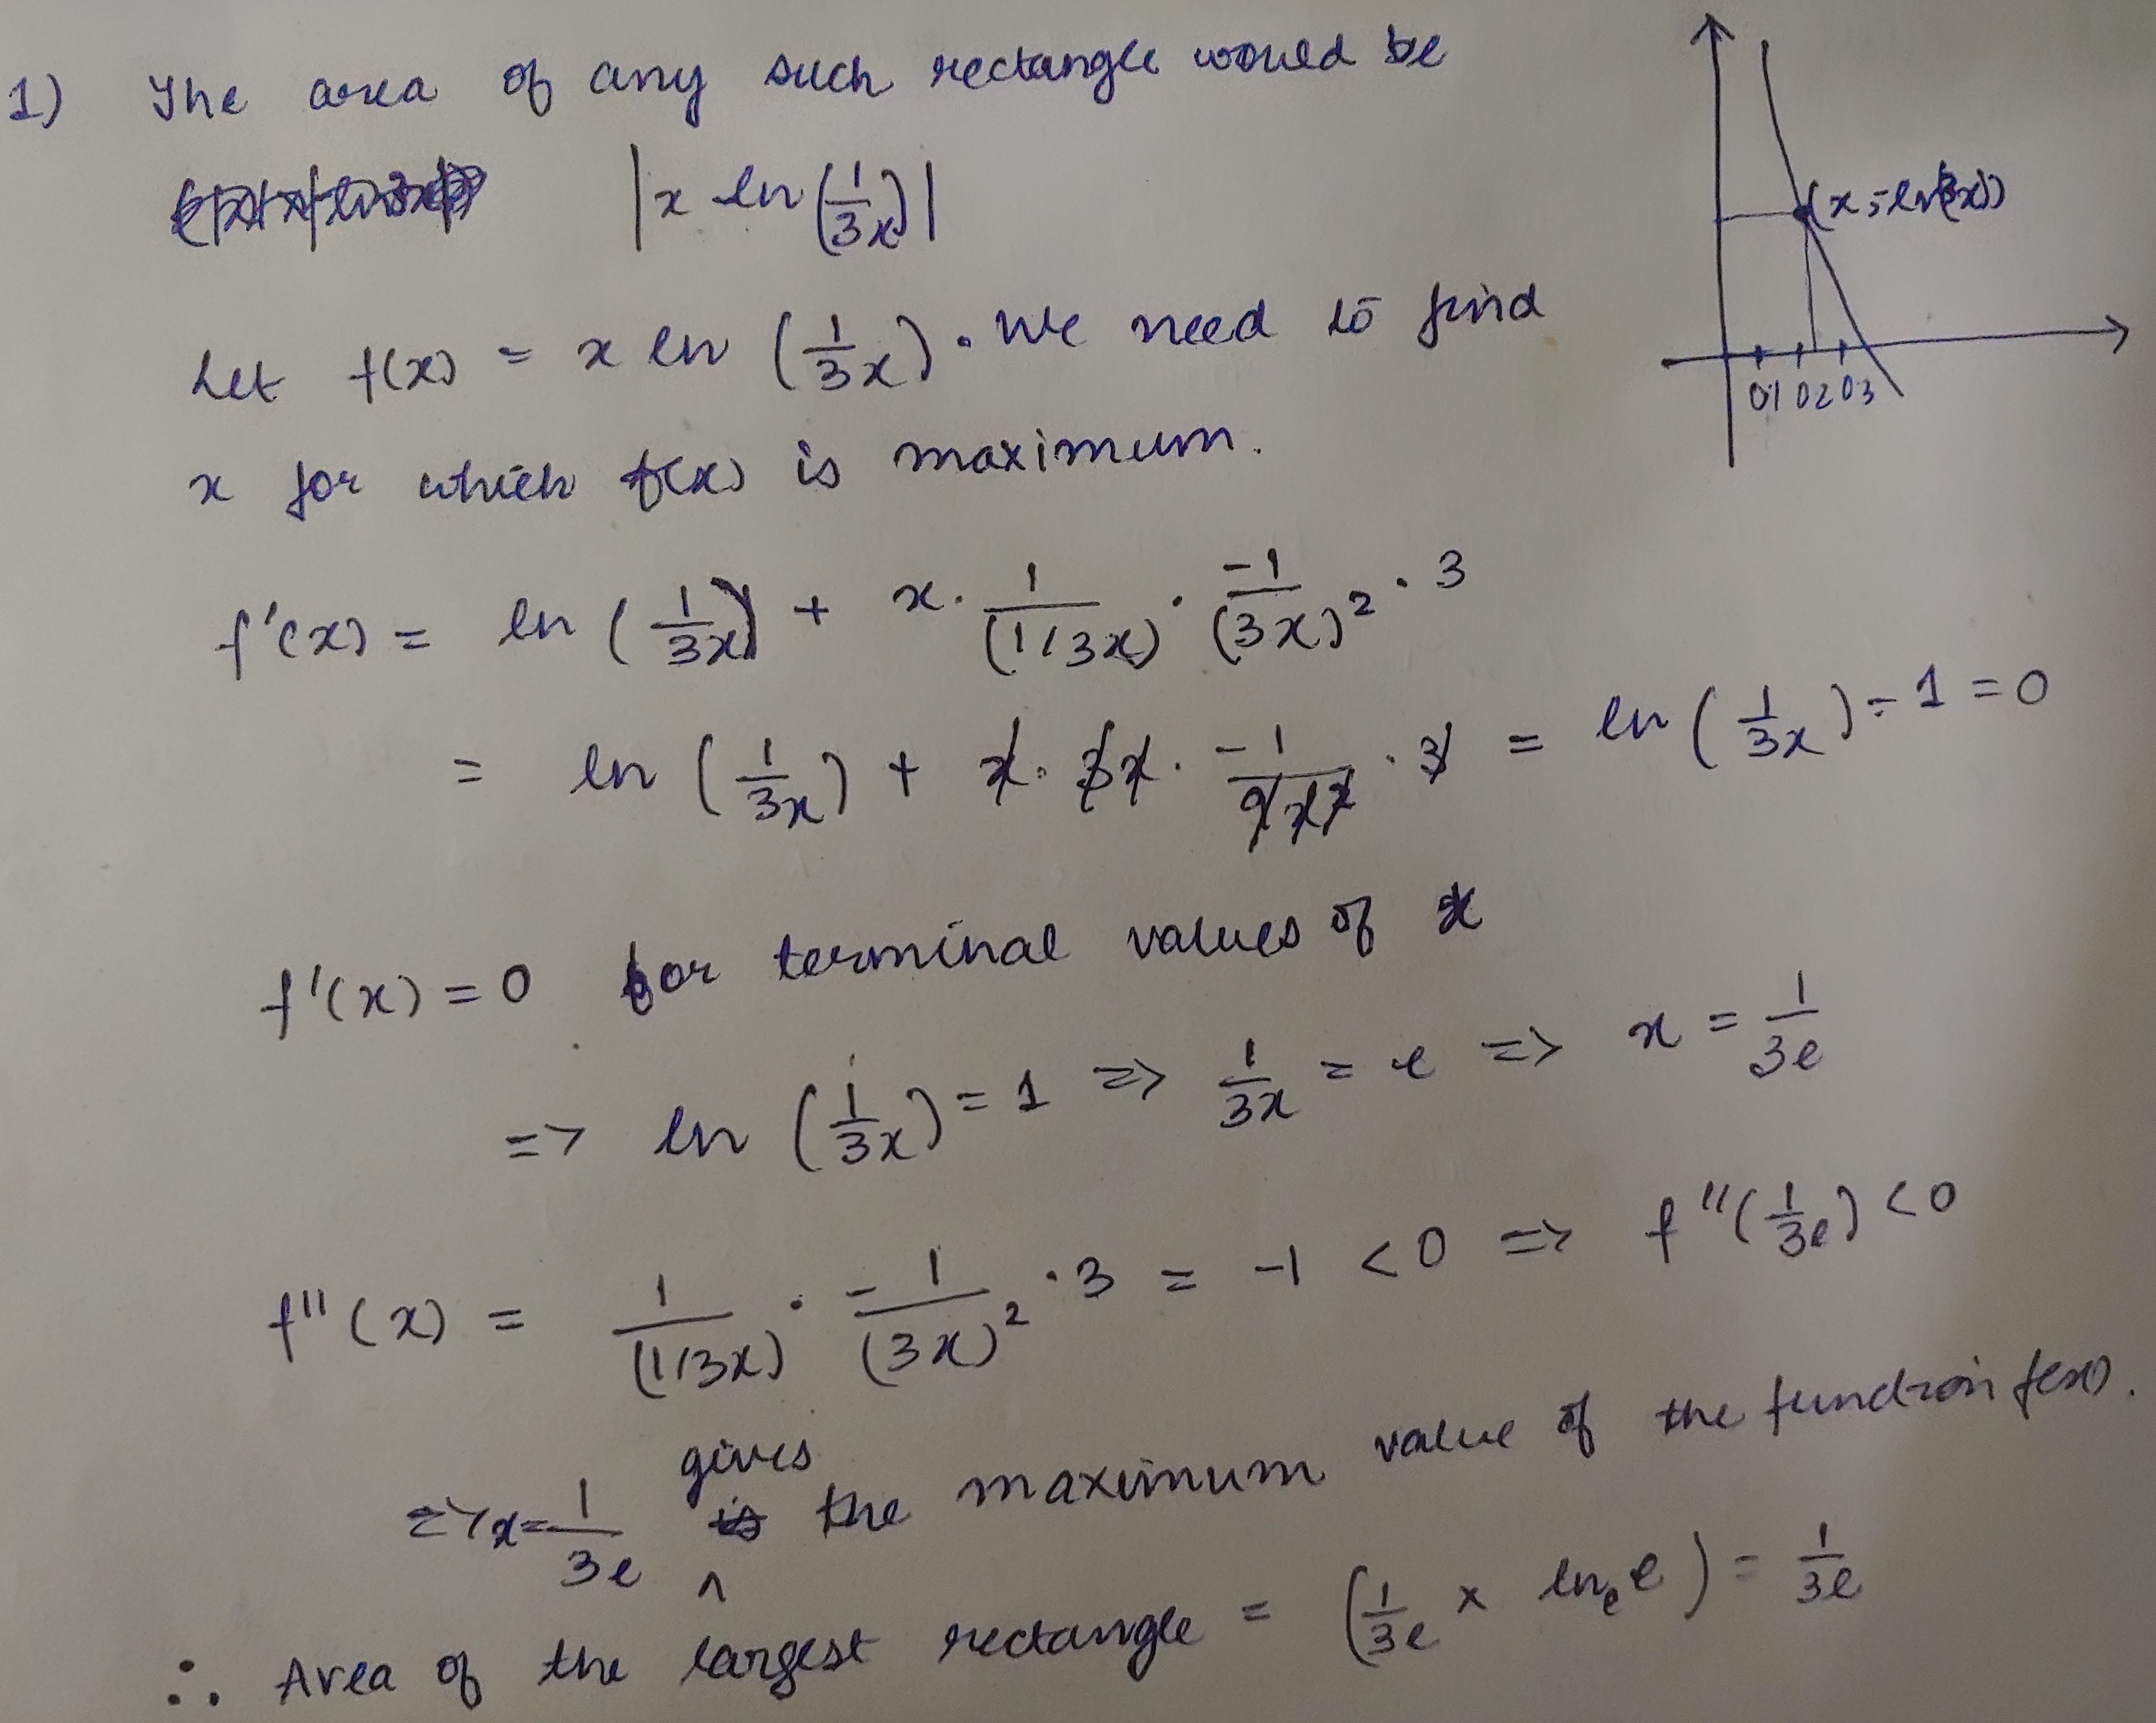 1) The area of any such rectangle would be
|x ln(1/3x)|
(x, -ln(3x))
0.1 0.2 0.3
Let f(x) = x ln (1/3x). We need to find
x for which f(x) is maximum.
f'(x) = ln (1/3x) + x. 1/(1/3x) . -1/(3x)² . 3
= ln (1/3x) + x. 3x. -1/9x² . 3 = ln (1/3x) - 1 = 0
f'(x) = 0 for terminal values of x
=> ln (1/3x) = 1 => 1/3x = e => x = 1/3e
f''(x) = 1/(1/3x) . -1/(3x)² . 3 = -1 < 0 => f''(1/3e) < 0
=> x = 1/3e gives the maximum value of the function f(x).
∴ Area of the largest rectangle = (1/3e × lnₑe) = 1/3e